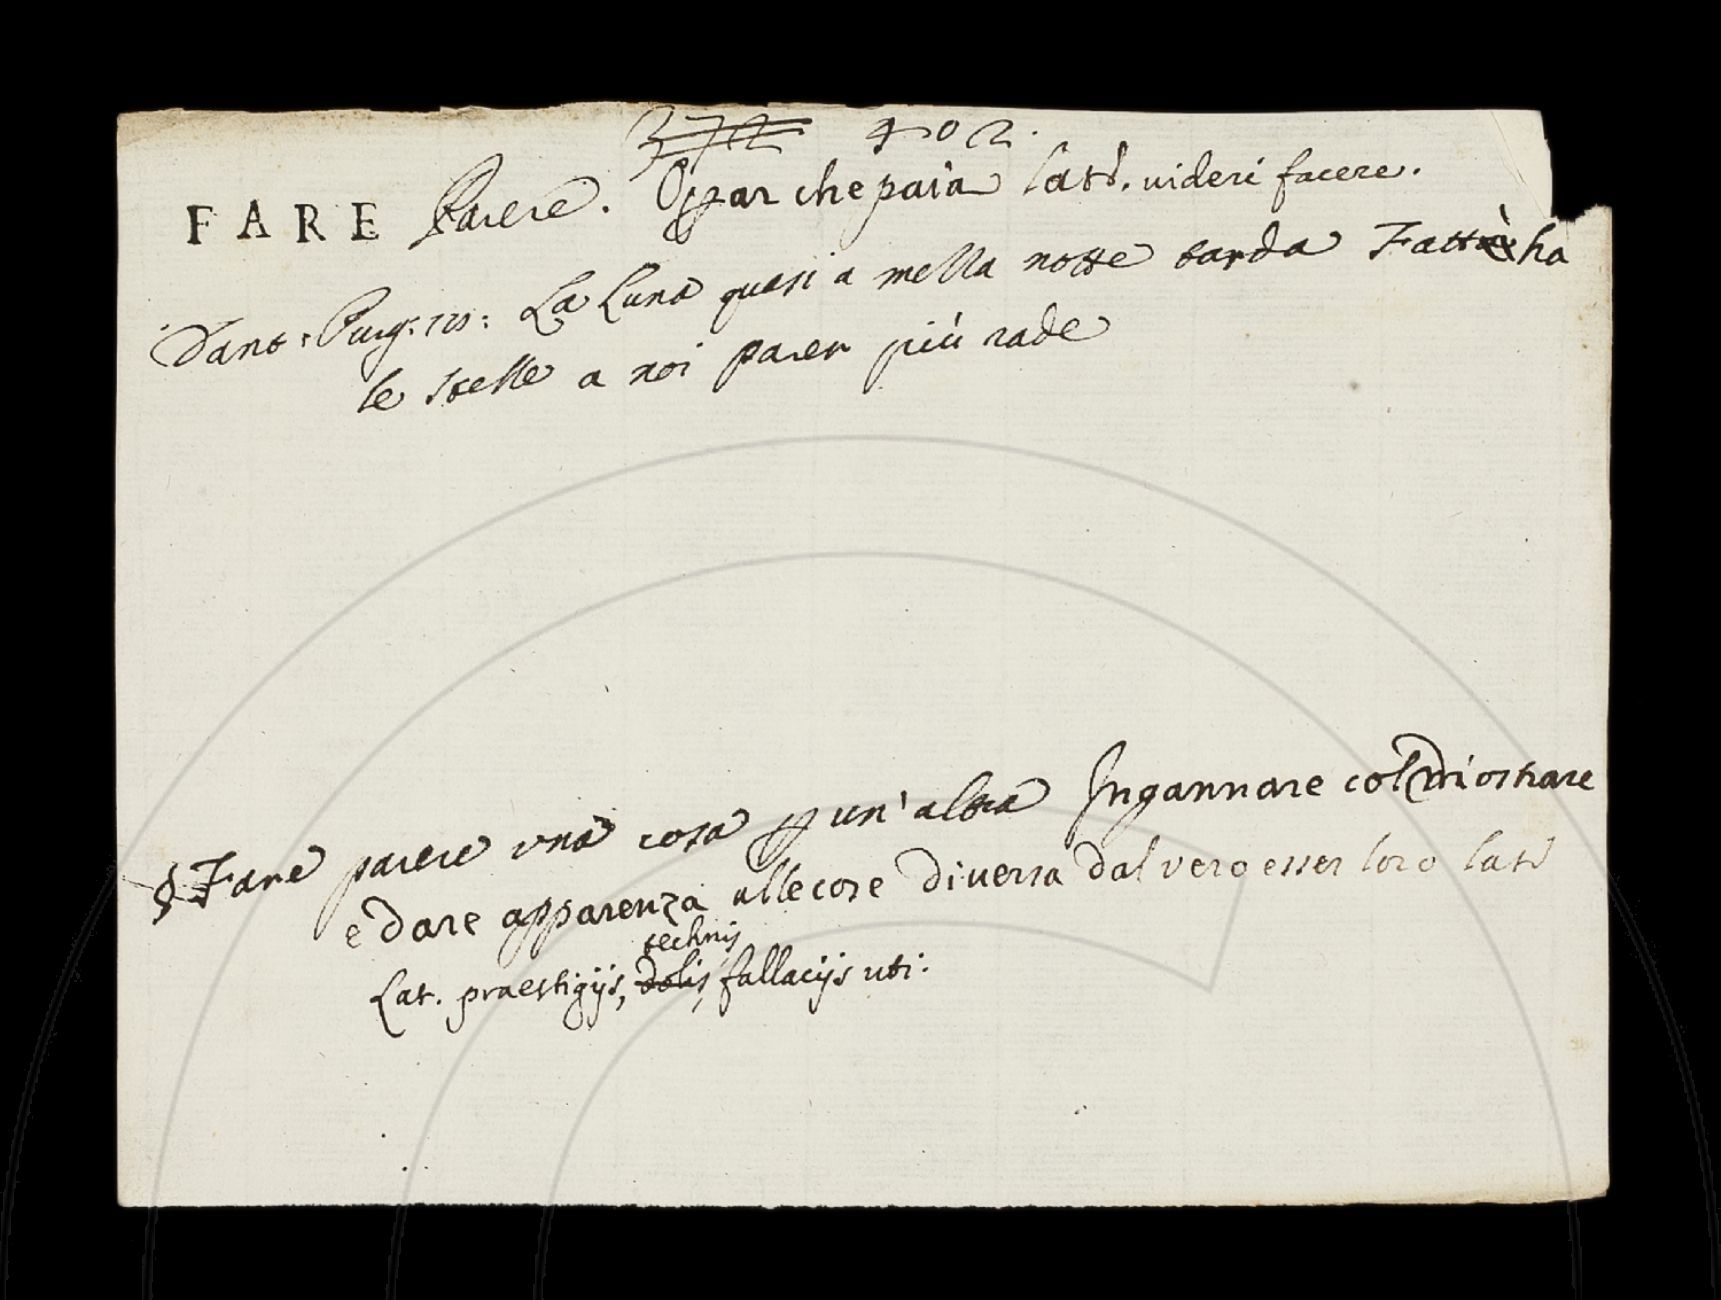 372 402.
FARE Parere. Oppar che paia latt. videri facere.
Dant: Purg: La Luna quasi a mezza notte tarda Fatt ha
le stelle a noi parer più rade
§ Fare parere una cosa p un'altra Ingannare col
e Dare apparenza alle cose Diversa Dal vero esser loro lat
technis
Lat. praestigijs, dolis, fallacijs uti: